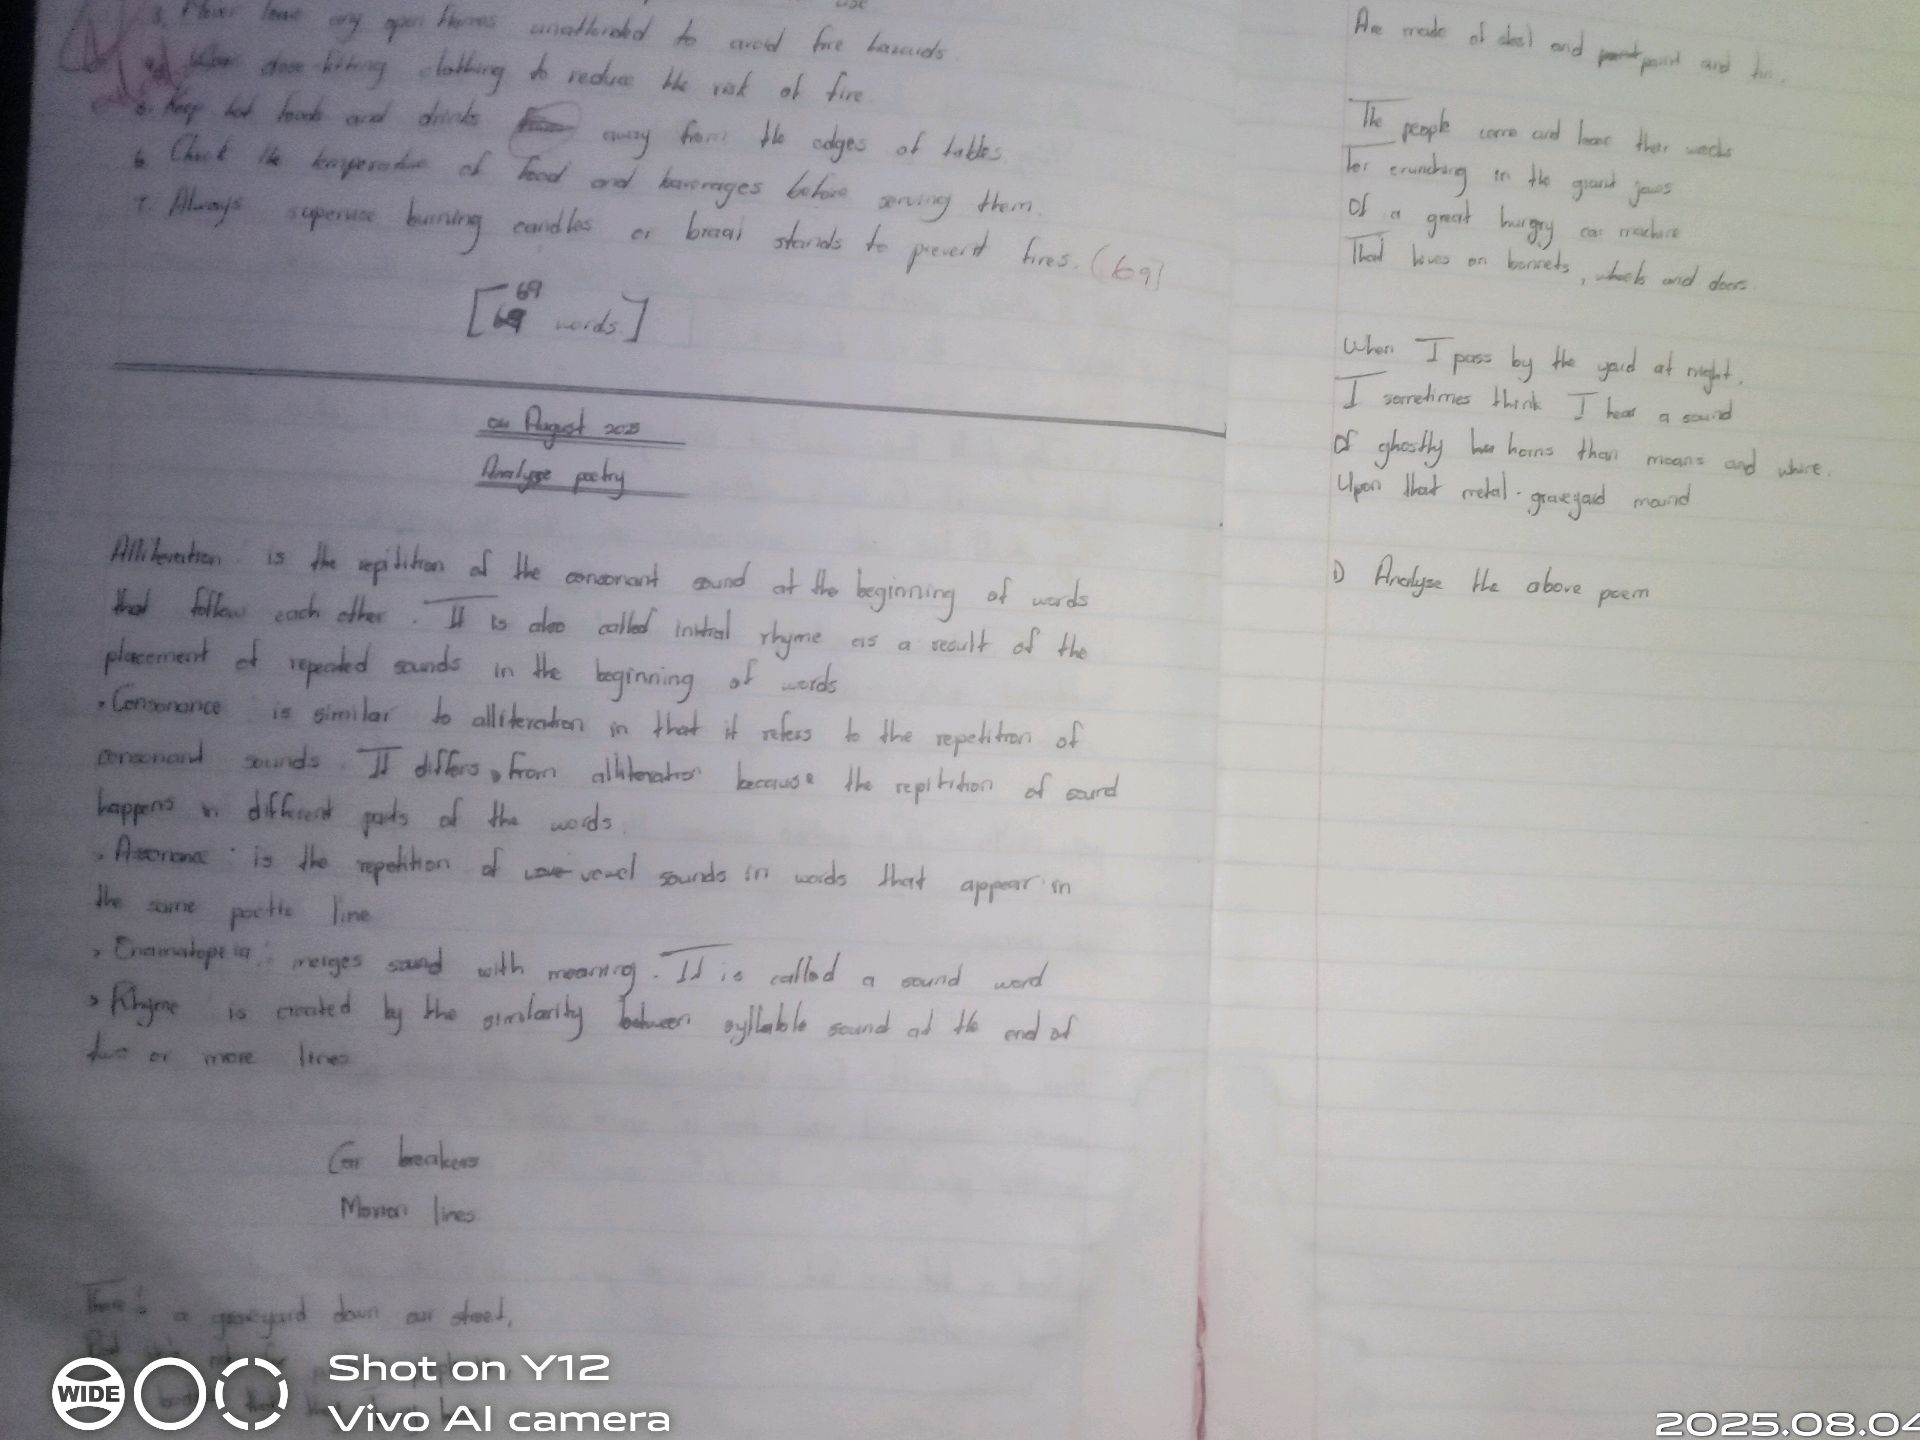 use
3. Never leave any open flames unattended to avoid fire hazards.
4. Wear close-fitting clothing to reduce the risk of fire
5. Keep hot foods and drinks away from the edges of tables
6. Check the temperature of food and baverages before serving them.
7. Always supervise burning candles or braai stands to prevent fires. (69)
69
[69 words.]
04 August 2025
Analyse poetry
Alliteration: is the repitition of the consonant sound at the beginning of words
that follow each other. It is also called initial rhyme as a result of the
placement of repeated sounds in the beginning of words
• Consonance is similar to alliteration in that it refers to the repetition of
consonant sounds. It differs from alliteration because the repitition of sound
happens in different parts of the words.
• Assonance: is the repetition of vowel sounds in words that appear in
the same poetic line
• Onomatopeia: merges sound with meaning. It is called a sound word
• Rhyme is created by the similarity between syllable sound at the end of
two or more lines
Car breakers
Marion lines
There's a graveyard down our street,
But it's not for
Are made of steel and paint and tin.
The people come and leave their wrecks
For crunching in the giant jaws
Of a great hungry car machine
That lives on bonnets, wheels and doors.
When I pass by the yard at night,
I sometimes think I hear a sound
Of ghostly horns than moans and whine.
Upon that metal-graveyard mound
1) Analyse the above poem
WIDE
Shot on Y12
Vivo AI camera
2025.08.04